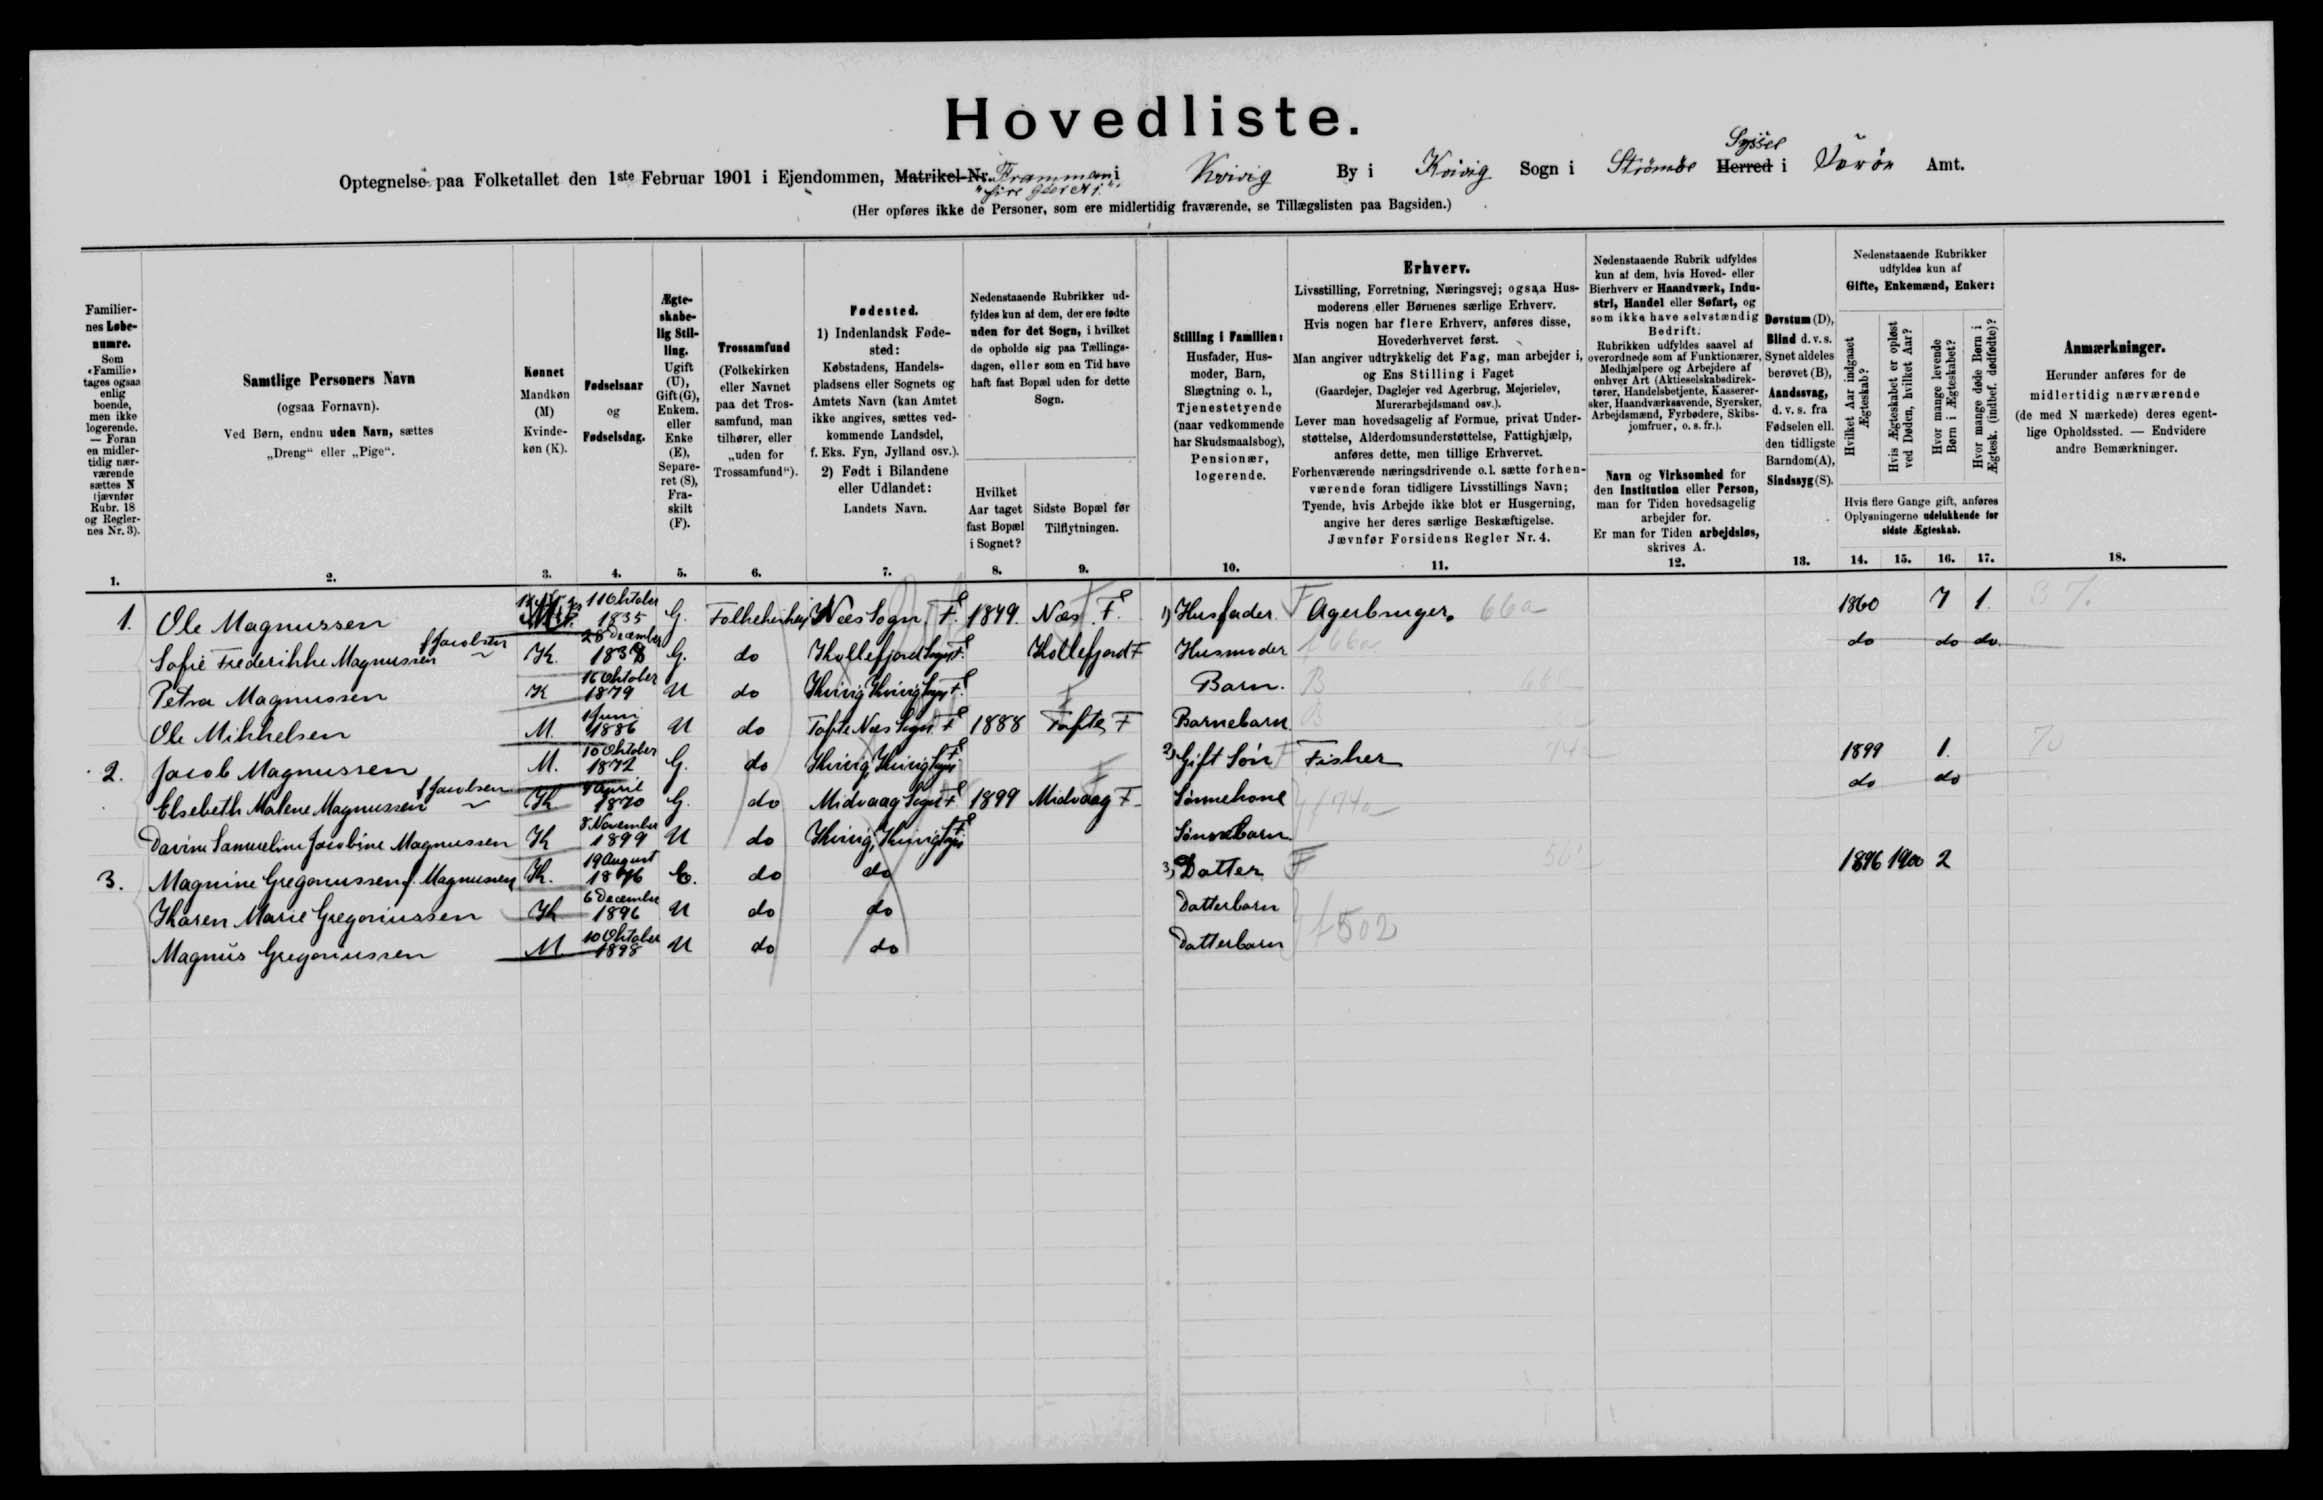 Hovedliste.
Optegnelse paa Folketallet den 1ste Februar 1901 i Ejendommen, Matrikel-Nr. Frammani Kvivig By i Kvivig Sogn i Strömöe Syssel Herred i Amt.
(Her opføres ikke de Personer, som ere midlertidig fraværende, se Tillægslisten paa Bagsiden.)
Familiernes Løbenumre.
Som «Familie» tages ogsaa enlig boende, men ikke logerende. — Foran en midlertidig nærværende sættes N (jævnfør Rubr. 18 og Reglernes Nr. 3).
1.
Samtlige Personers Navn
(ogsaa Fornavn).
Ved Børn, endnu uden Navn, sættes
„Dreng“ eller „Pige“.
2.
Kønnet
Mandkøn
(M)
Kvinde-
køn (K).
3.
Fødselsaar
og
Fødselsdag.
4.
Ægte-
skabe-
lig Stil-
ling.
Ugift
(U),
Gift (G),
Enkem.
eller
Enke
(E),
Separe-
ret (S),
Fra-
skilt
(F).
5.
Trossamfund
(Folkekirken
eller Navnet
paa det Tros-
samfund, man
tilhører, eller
„uden for
Trossamfund“).
6.
Fødested.
1) Indenlandsk Føde-
sted:
Købstadens, Handels-
pladsens eller Sognets og
Amtets Navn (kan Amtet
ikke angives, sættes ved-
kommende Landsdel,
f. Eks. Fyn, Jylland osv.).
2) Født i Bilandene
eller Udlandet:
Landets Navn.
7.
Nedenstaaende Rubrikker ud-
fyldes kun af dem, der ere fødte
uden for det Sogn, i hvilket
de opholde sig paa Tællings-
dagen, eller som en Tid have
haft fast Bopæl uden for dette
Sogn.
Hvilket
Aar taget
fast Bopæl
i Sognet?
8.
Sidste Bopæl før
Tilflytningen.
9.
Stilling i Familien:
Husfader, Hus-
moder, Barn,
Slægtning o. l.,
Tjenestetyende
(naar vedkommende
har Skudsmaalsbog),
Pensionær,
logerende.
10.
Erhverv.
Livsstilling, Forretning, Næringsvej; ogsaa Hus-
moderens eller Børnenes særlige Erhverv.
Hvis nogen har flere Erhverv, anføres disse,
Hovederhvervet først.
Man angiver udtrykkelig det Fag, man arbejder i,
og Ens Stilling i Faget
(Gaardejer, Daglejer ved Agerbrug, Mejerielev,
Murerarbejdsmand osv.).
Lever man hovedsagelig af Formue, privat Under-
støttelse, Alderdomsunderstøttelse, Fattighjælp,
anføres dette, men tillige Erhvervet.
Forhenværende næringsdrivende o.l. sætte forhen-
værende foran tidligere Livsstillings Navn;
Tyende, hvis Arbejde ikke blot er Husgerning,
angive her deres særlige Beskæftigelse.
Jævnfør Forsidens Regler Nr. 4.
11.
Nedenstaaende Rubrik udfyldes
kun af dem, hvis Hoved- eller
Bierhverv er Haandværk, Indu-
stri, Handel eller Søfart, og
som ikke have selvstændig
Bedrift.
Rubrikken udfyldes saavel af
overordnede som af Funktionærer,
Medhjælpere og Arbejdere af
enhver Art (Aktieselskabsdirek-
tører, Handelsbetjente, Kasserer-
sker, Haandværkssvende, Syersker,
Arbejdsmænd, Fyrbødere, Skibs-
jomfruer, o. s. fr.).
Navn og Virksomhed for
den Institution eller Person,
man for Tiden hovedsagelig
arbejder for.
Er man for Tiden arbejdsløs,
skrives A.
12.
Døvstum (D),
Blind d. v. s.
Synet aldeles
berøvet (B),
Aandssvag,
d. v. s. fra
Fødselen ell.
den tidligste
Barndom (A),
Sindssyg (S).
13.
Nedenstaaende Rubrikker
udfyldes kun af
Gifte, Enkemænd, Enker:
Hvilket Aar indgaaet Ægteskab?
Hvis Ægteskabet er opløst ved Døden, hvilket Aar?
Hvor mange levende Børn i Ægteskabet?
Hvor mange døde Børn i Ægtesk. (indbef. dødfødte)?
Hvis flere Gange gift, anføres
Oplysningerne udelukkende for
sidste Ægteskab.
14. 15. 16. 17.
Anmærkninger.
Herunder anføres for de
midlertidig nærværende
(de med N mærkede) deres egent-
lige Opholdssted. — Endvidere
andre Bemærkninger.
18.
1. Ole Magnussen 11 Oktober 1835 G. Folkekirken Næs Sogn F. 1879. Næs. F. 1) Husfader F Agerbruger. 66a 1860 7 1.
Sofie Frederikke Magnussen f Jacobsen K. 28 December 1838 G. do Kollefjord Sogn F. Kollefjord F Husmoder do do do
Petra Magnussen K 16 Oktober 1879 U do Kvivig Kvivig Sogn F. Barn. B
Ole Mikkelsen M. 1 Juni 1886 U do Tofte Næs Sogn F 1888 Tofte F Barnebarn B
2. Jacob Magnussen M. 10 Oktober 1872 G. do Kvivig, Kvivig Sogn F 2) Gift Søn F Fisker 1899 1.
Elsebeth Malene Magnussen f Jacobsen K 1 April 1870 G. do Midvaag Sogn F 1899 Midvaag F Sønnekone do do
Davine Samueline Jacobine Magnussen K 8 November 1899 U do Kvivig, Kvivig Sogn F Sønnebarn
3. Magnine Gregoriussen f. Magnussen K. 19 August 1876 E. do do 3) Datter F 1896 1900 2
Karen Marie Gregoriussen K 6 December 1896 U do do Datterbarn
Magnus Gregoriussen M 10 Oktober 1898 U do do Datterbarn f 502